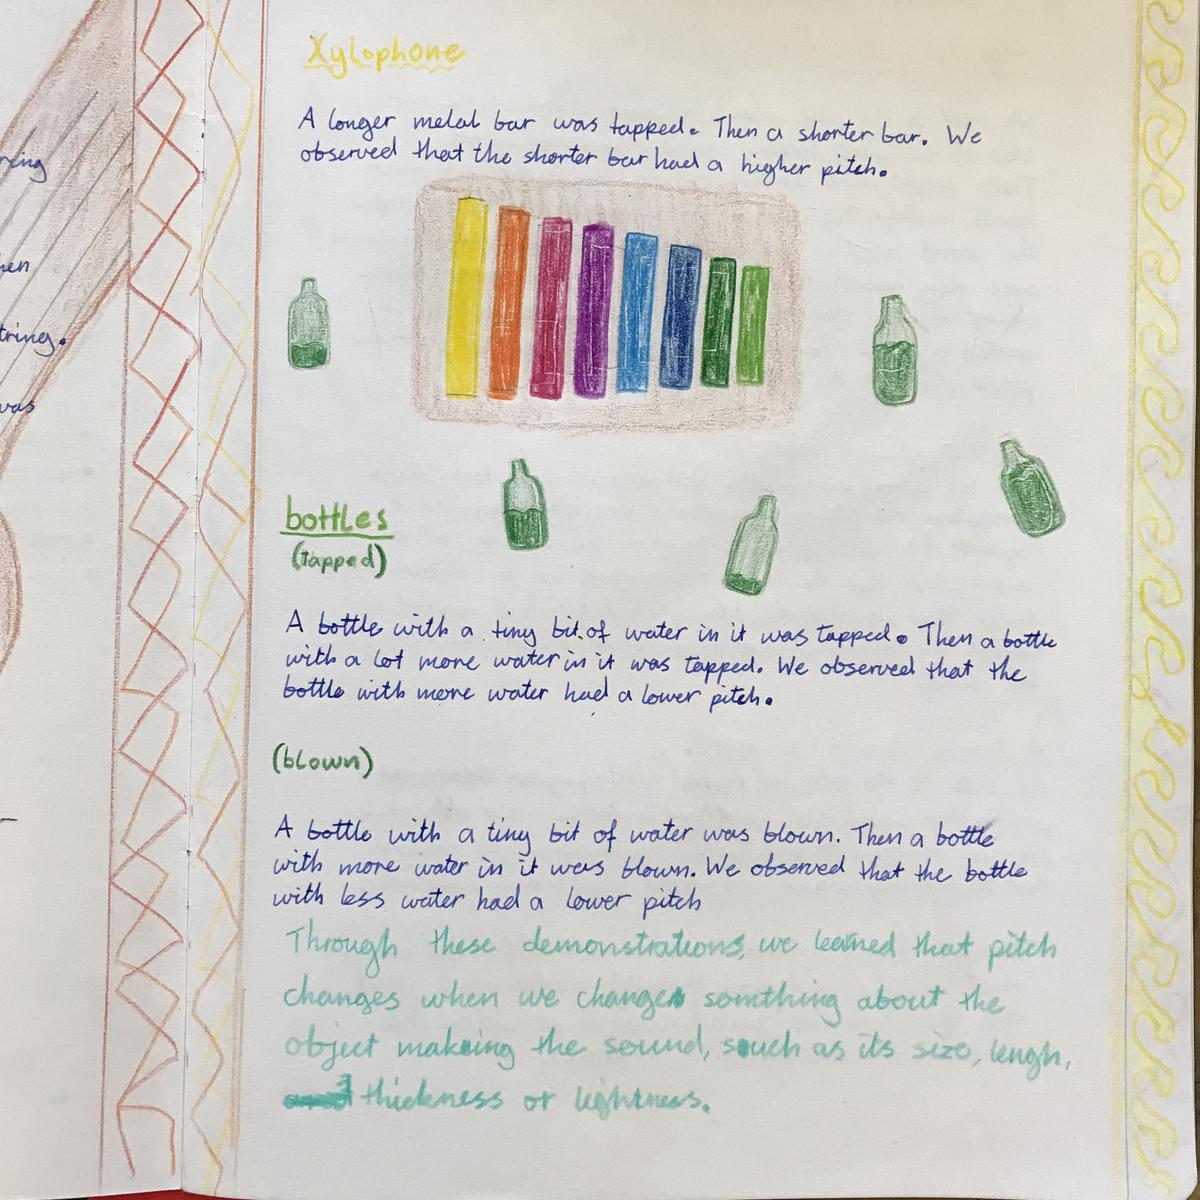 rxing
hen
tring.
was
Xylophone
A longer metal bar was tapped. Then a shorter bar. We
observed that the shorter bar had a higher pitch.
bottles
(tapped)
A bottle with a tiny bit of water in it was tapped. Then a bottle
with a lot more water in it was tapped. We observed that the
bottle with more water had a lower pitch.
(blown)
A bottle with a tiny bit of water was blown. Then a bottle
with more water in it was blown. We observed that the bottle
with less water had a lower pitch
Through these demonstrations, we learned that pitch
changes when we change somthing about the
object making the sound, such as its size, lengh,
thickness or lightness.